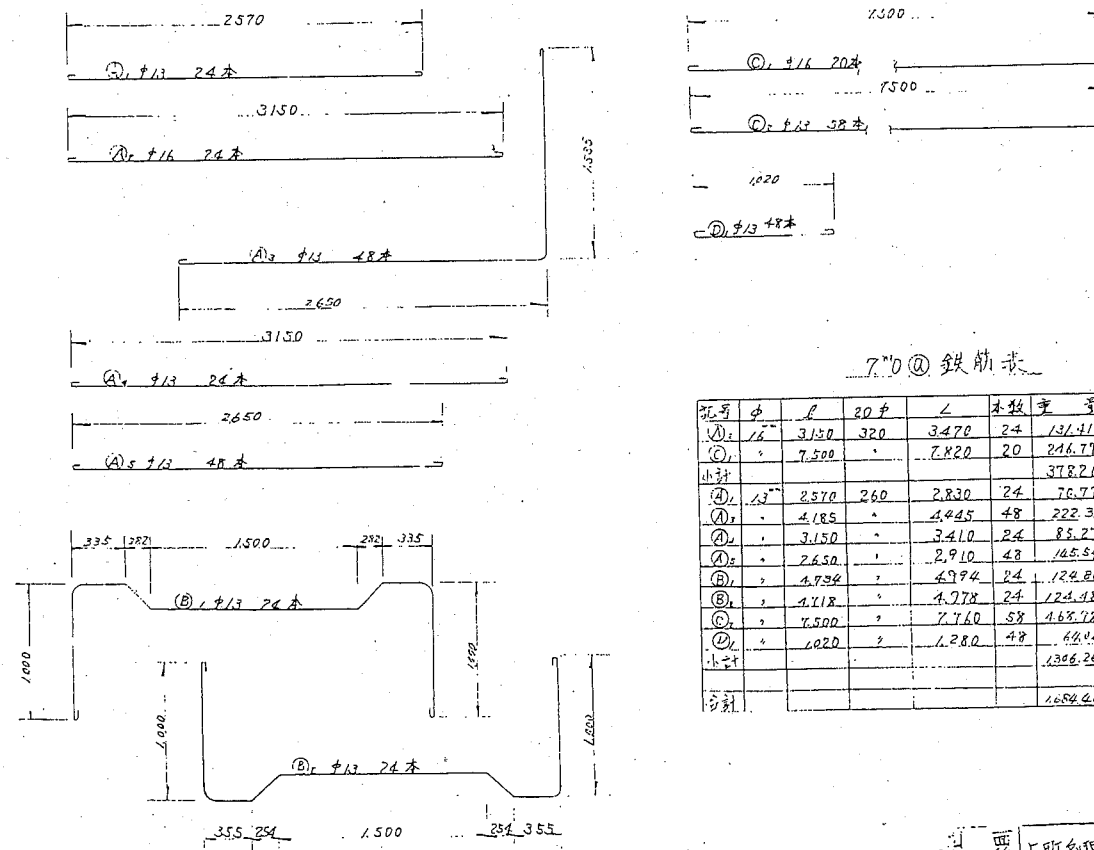 2570
Ⓐ₁ φ13 24本
3150
Ⓐ₂ φ16 24本
1.535
Ⓐ₃ φ13 48本
2650
3150
Ⓐ₄ φ13 24本
2,650
Ⓐ₅ φ13 48本
335 282 1.500 282 335
Ⓑ₁ φ13 24本
1.000
1.000
1.000
1.000
Ⓑ₂ φ13 24本
355 254 1.500 254 355
7.500
Ⓒ₁ φ16 20本
7500
Ⓒ₂ φ13 58本
1.020
Ⓓ₁ φ13 48本
鉄筋表
記号 φ ℓ 20φ L 本数 重
Ⓐ₂ 16 3.150 320 3.470 24 131.41
Ⓒ₁ 〃 7.500 〃 7.820 20
小計 378.2
Ⓐ₁ 13 2.570 260 2,830 24
Ⓐ₃ 〃 4.185 〃 4.445 48 222.3
Ⓐ₄ 〃 3.150 〃 3.410 24 85.2
Ⓐ₅ 〃 2.650 〃 2,910 48 145.5
Ⓑ₁ 〃 4.734 〃 4.994 24 124.8
Ⓑ₂ 〃 4.718 〃 4.978 24 124.48
Ⓒ₂ 〃 7.500 〃 7.760 58
Ⓓ₁ 〃 1.020 〃 1.280 48
小計 1306.26
合計 1.684.4